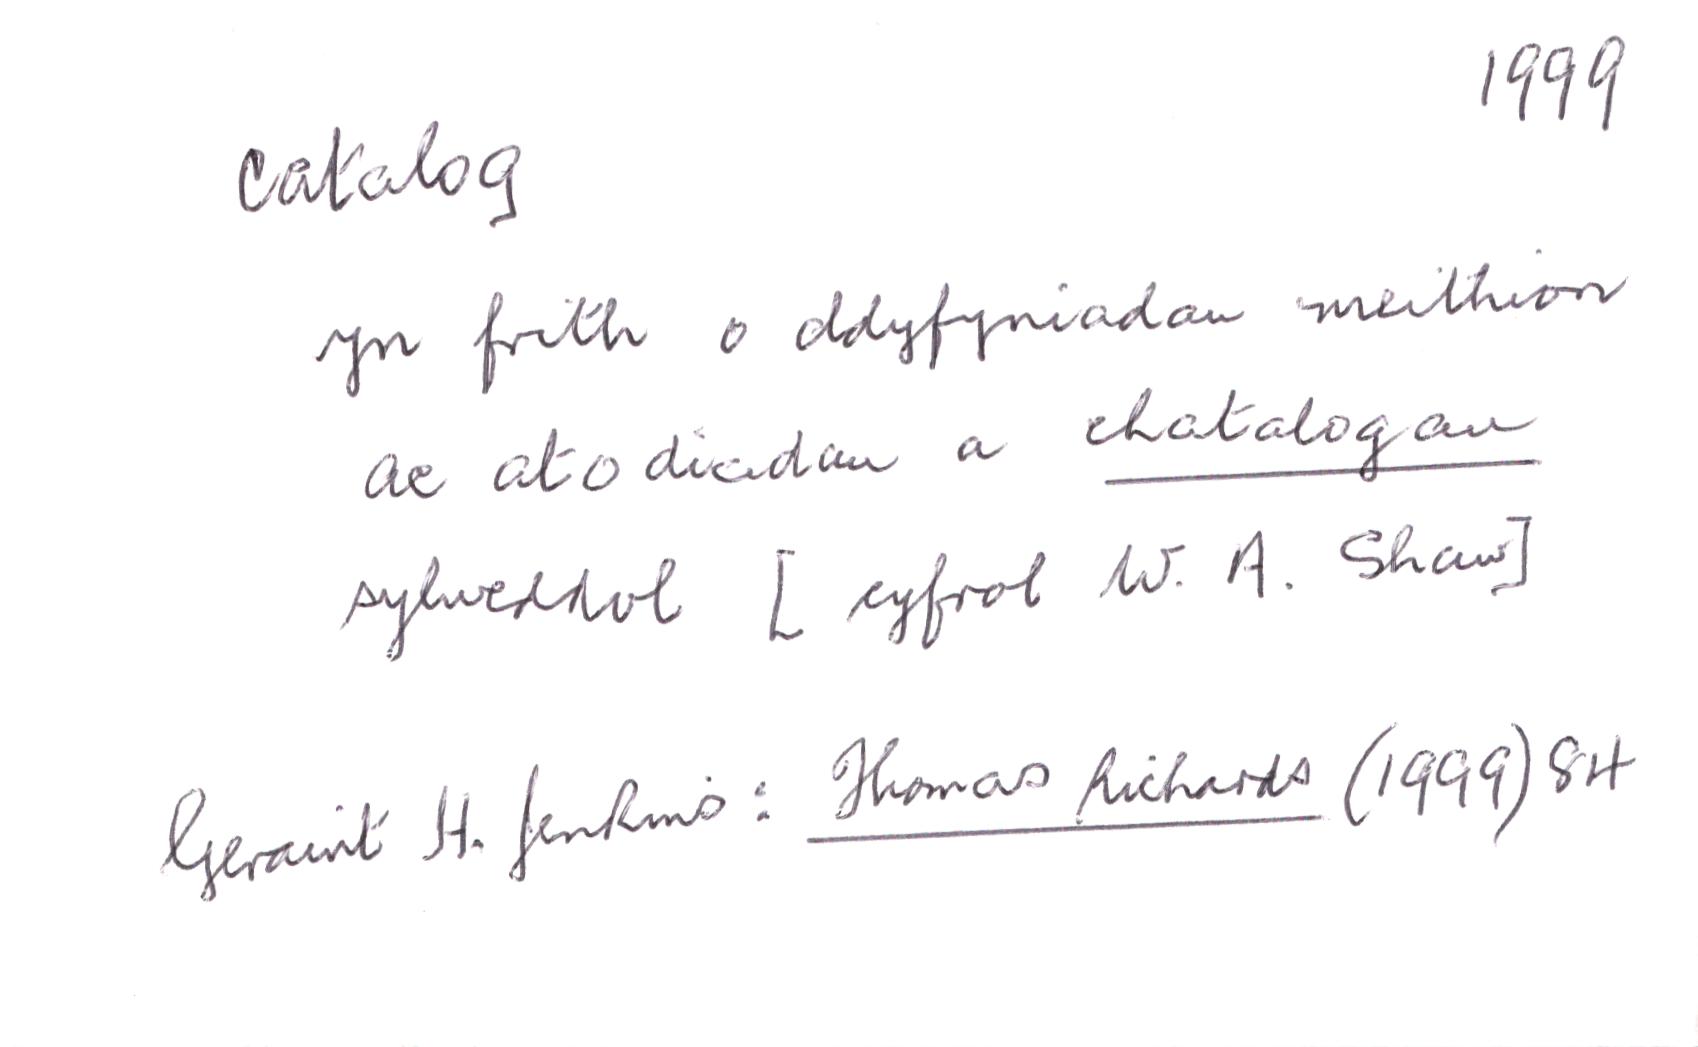 1999
catalog
yn frith o ddyfyniadau meithion
ac atodiadau a chatalogau
sylweddol [cyfrol W. A. Shaw]
Geraint H. Jenkins: Thomas Richards (1999) 84